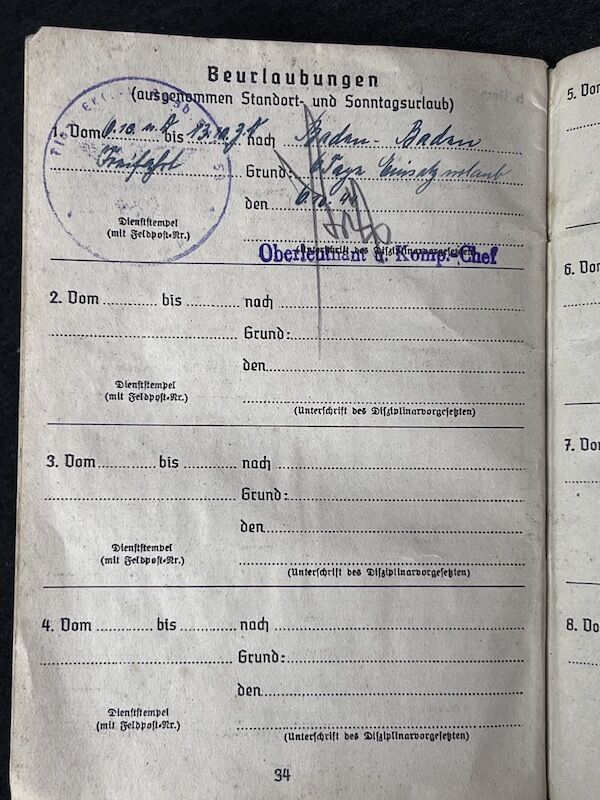 Beurlaubungen
(ausgenommen Standort- und Sonntagsurlaub)
1. Vom bis 13.10. nach Baden-Baden
Freifahrt Grund: 6 Tage Einsatzurlaub
den
Dienststempel
(mit Feldpost-Nr.)
(Unterschrift des Disziplinarvorgesetzten)
Oberleutnant u. Komp.-Chef
2. Vom bis nach
Grund:
den
Dienststempel
(mit Feldpost-Nr.)
(Unterschrift des Disziplinarvorgesetzten)
3. Vom bis nach
Grund:
den
Dienststempel
(mit Feldpost-Nr.)
(Unterschrift des Disziplinarvorgesetzten)
4. Vom bis nach
Grund:
den
Dienststempel
(mit Feldpost-Nr.)
(Unterschrift des Disziplinarvorgesetzten)
34
5. Vom
6. Vom
7. Vom
8. Vo